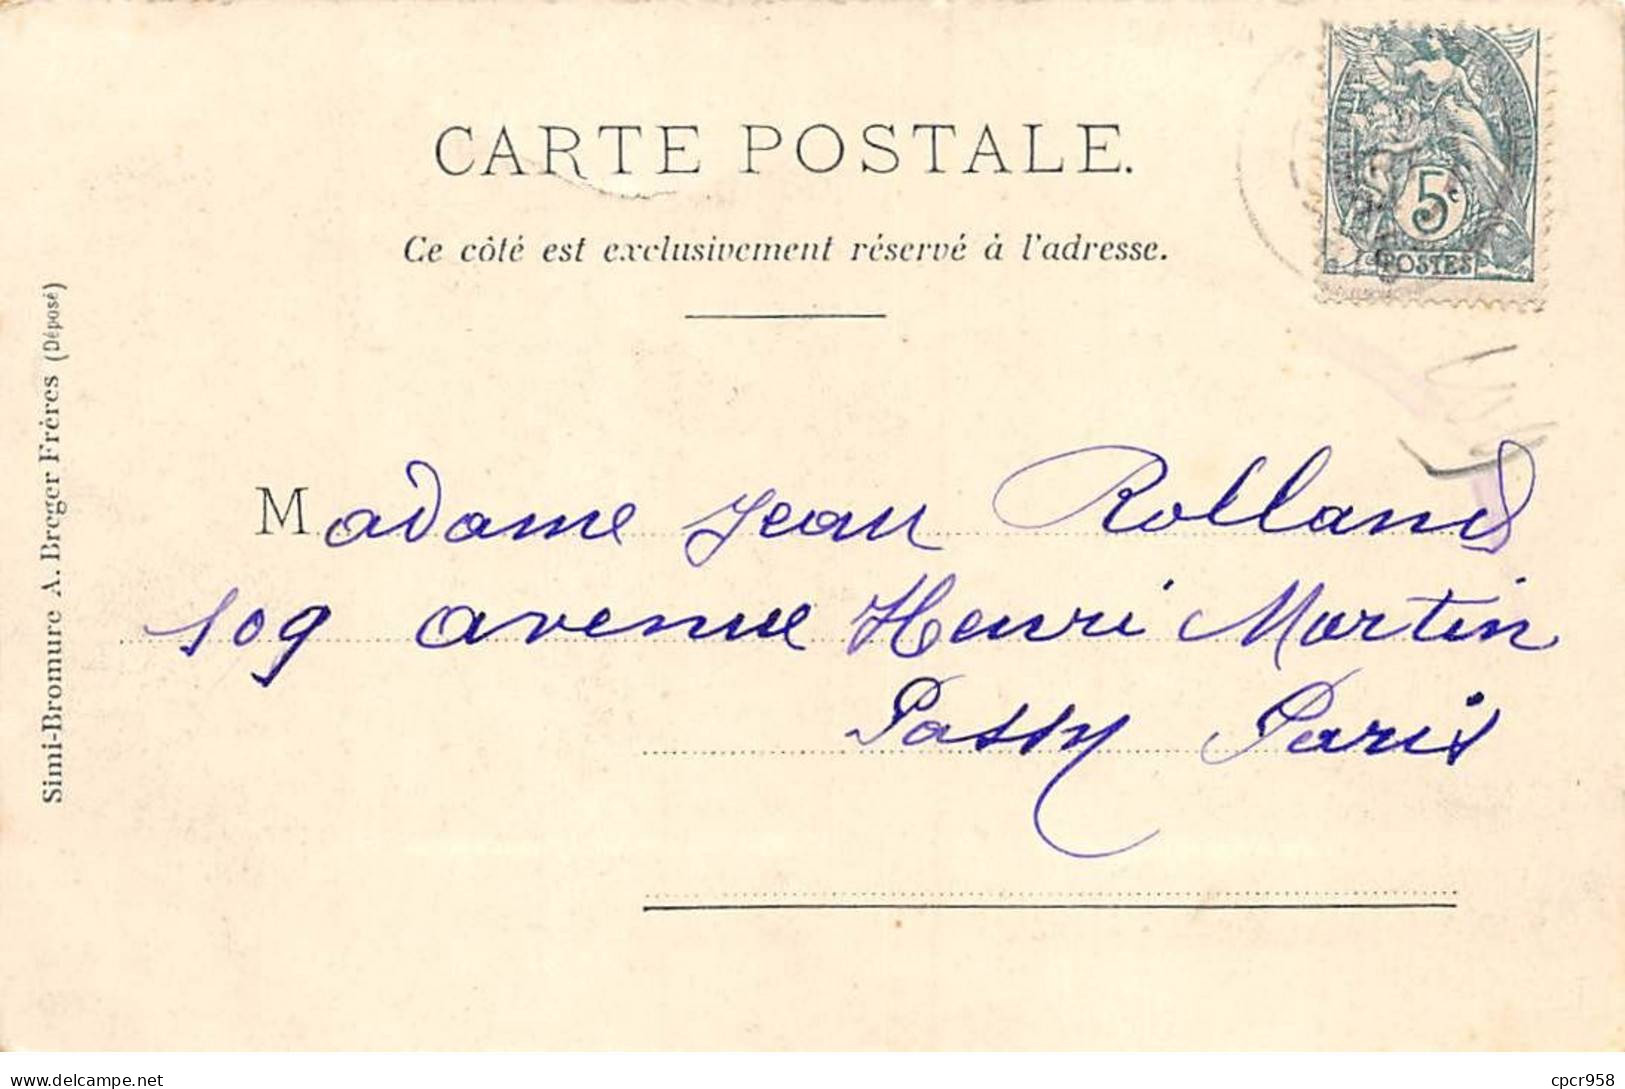 CARTE POSTALE.
Ce côté est exclusivement réservé à l'adresse.
5c
POSTES
Simi-Bromure A. Breger Frères (Déposé)
Madame Jean Rolland
109 avenue Henri Martin
Passy Paris
delcampe.net
cpcr958